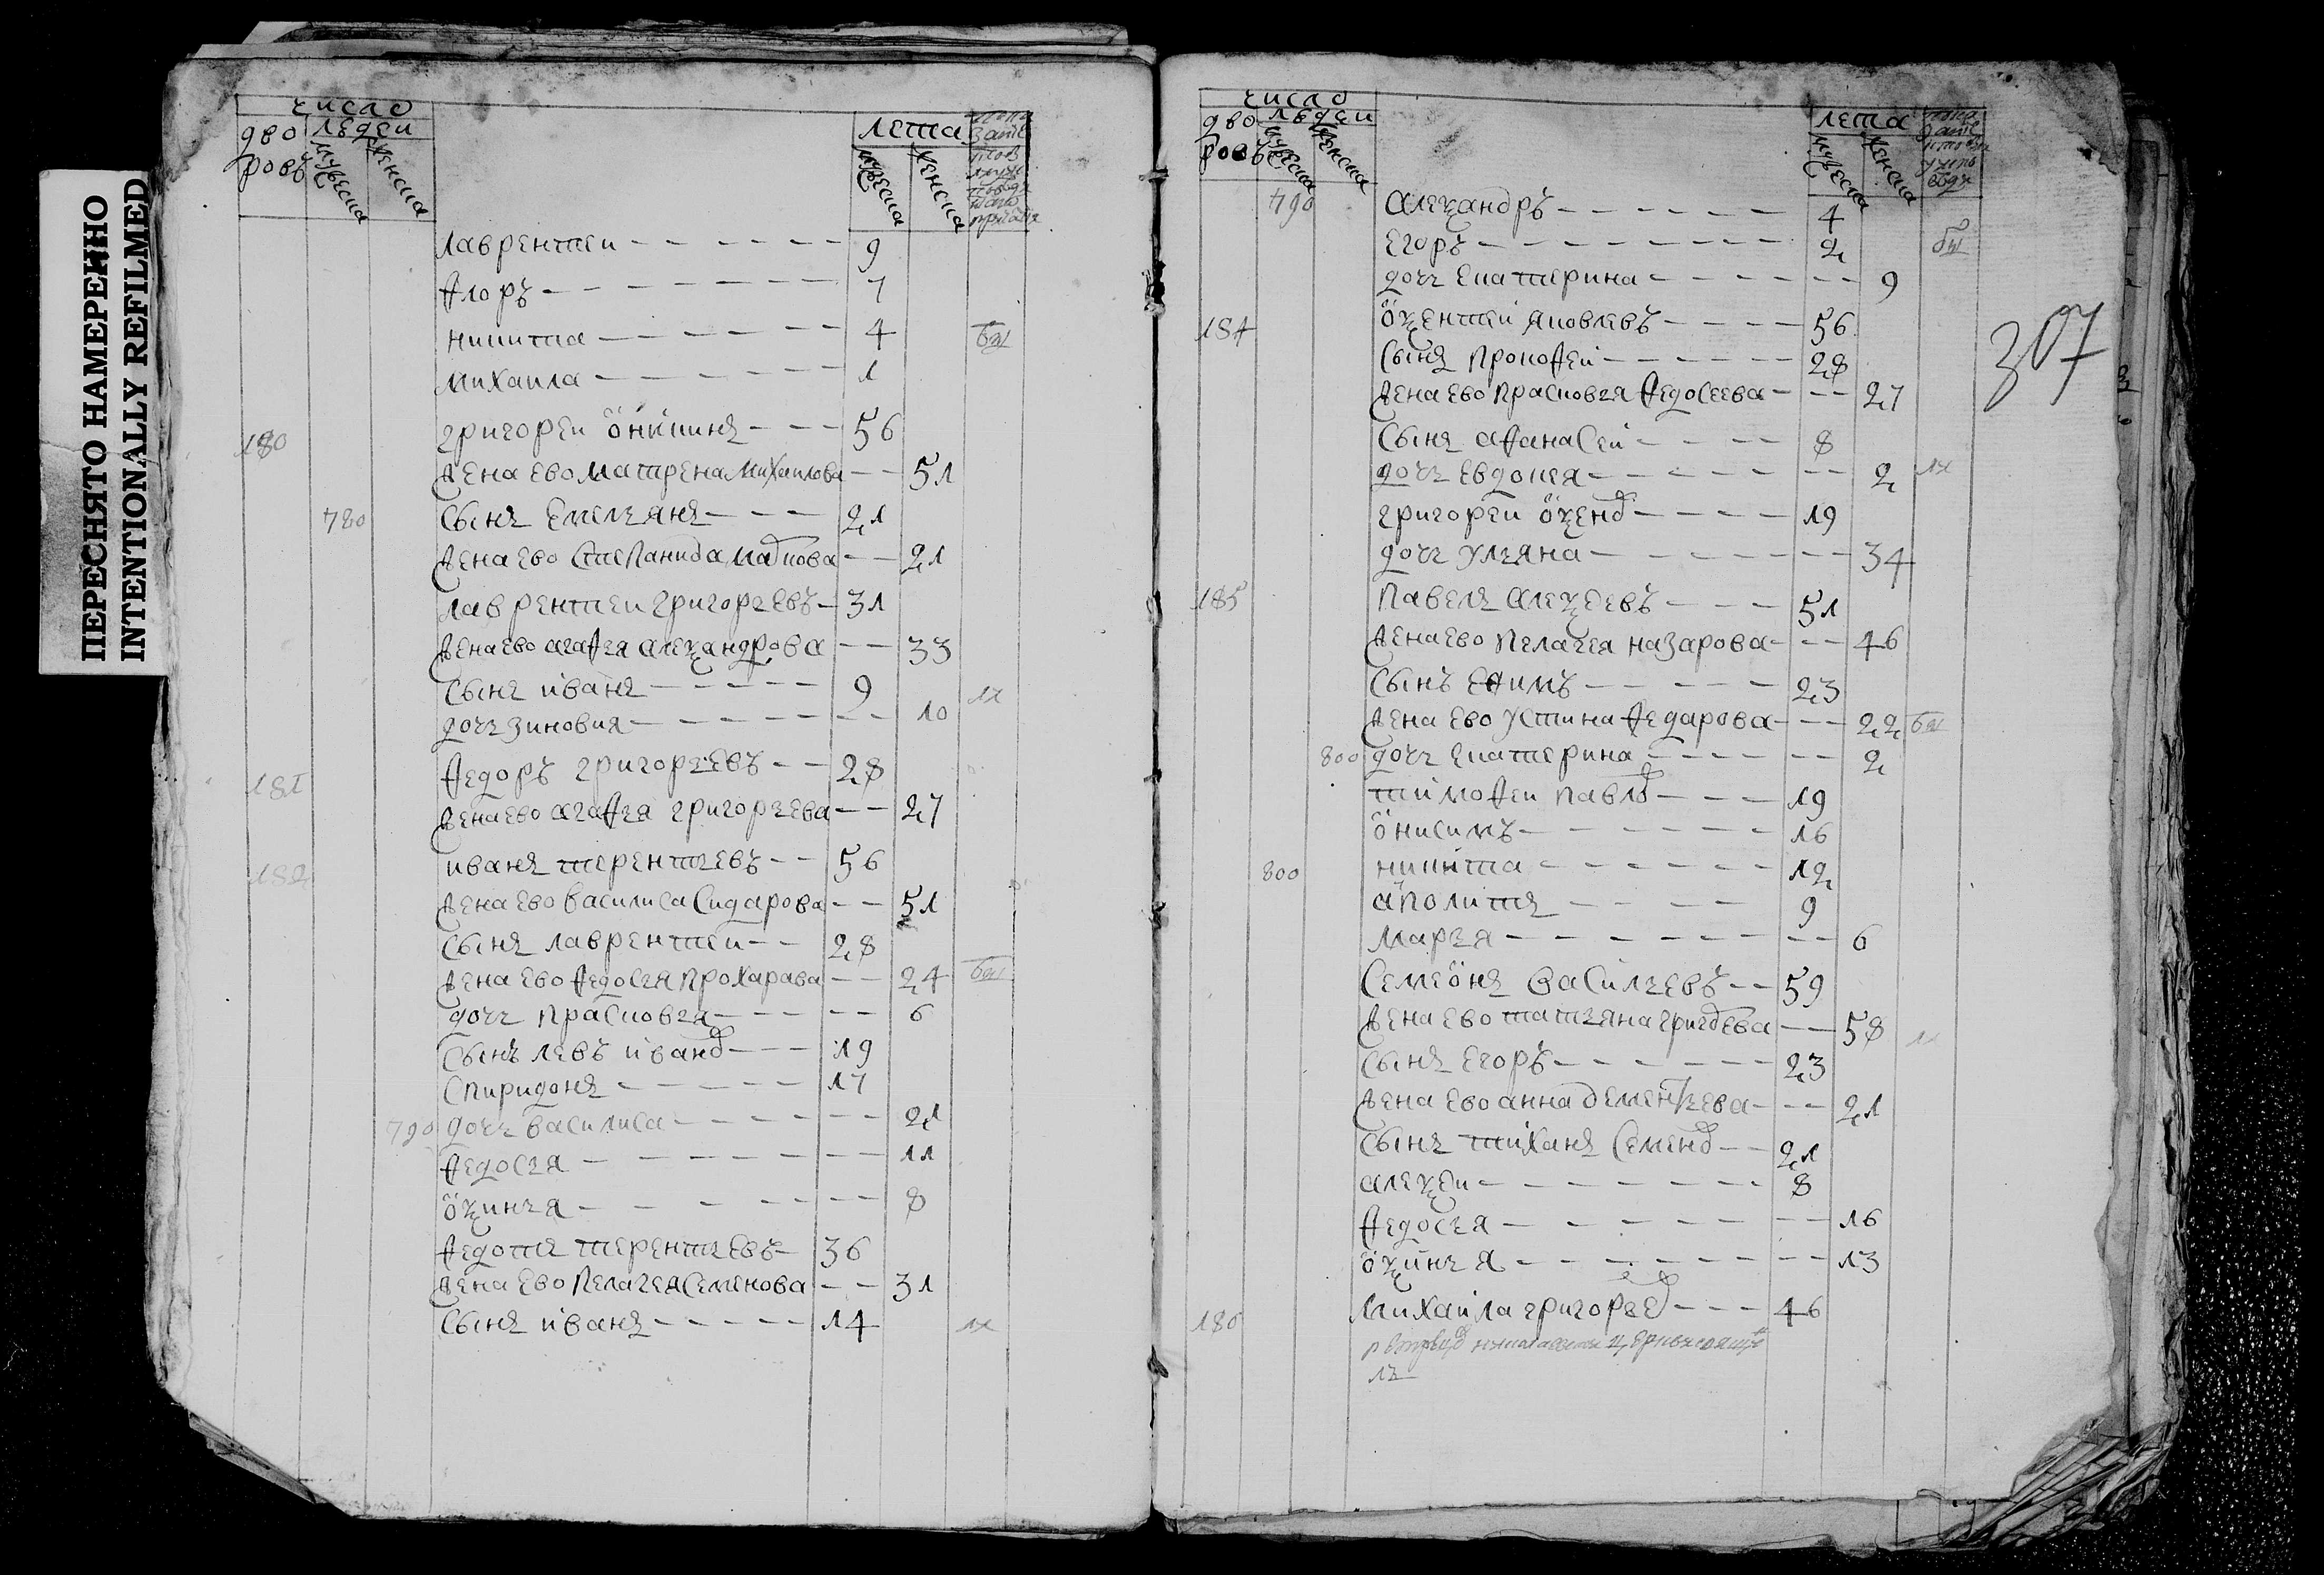 ПЕРЕСНЯТО НАМЕРЕННО
INTENTIONALLY REFILMED
число
дво людеи
ровъ мужеска женска
лета
мужеска женска
лаврентеи 9
Ѳлоръ 7
никита 4
михаила 1
180 григореи онікинъ 56
жена ево матрена михаилова 51
780 сынъ емельянъ 21
жена ево степанида 21
лаврентеи григорьевъ 31
жена ево агаѳья алеѯандрова 33
сынъ иванъ 9
дочь зиновия 10
181 Ѳедоръ григорьевъ 28
жена ево агаѳья григорьева 27
182 иванъ терентьевъ 56
жена ево василиса сидарова 51
сынъ лаврентеи 28
жена ево ѳедосья прохарава 24
дочь прасковья 6
сынъ левъ иванов 19
спиридонъ 17
790 дочь василиса 21
Ѳедосья 11
оѯинья 8
Ѳедотъ терентьевъ 36
жена ево пелагея семенова 31
сынъ иванъ 14
число
дво людеи
ровъ мужеска женска
лета
мужеска женска
307
790 алеѯандръ 4
егоръ 2
дочь екатерина 9
184 оѯентеи яковлевъ 56
сынъ прокоѳеи 28
жена ево прасковья ѳедосеева 27
сынъ аѳанасеи 8
дочь евдокея 2
григореи оѯенов 19
дочь ульяна 34
185 павелъ алеѯѣевъ 51
жена ево пелагея назарова 46
сынъ еѳимъ 23
жена ево устина ѳедарова 22
800 дочь екатерина 2
тимоѳеи павлов 19
онисимъ 16
800 никита 12
аполитъ 9
марья 6
семеонъ васильевъ 59
жена ево татьяна григорева 58
сынъ егоръ 23
жена ево анна дементьева 21
сынъ тиханъ семенов 21
алеѯѣи 8
Ѳедосья 16
оѯинья 13
186 михаила григорьев 46